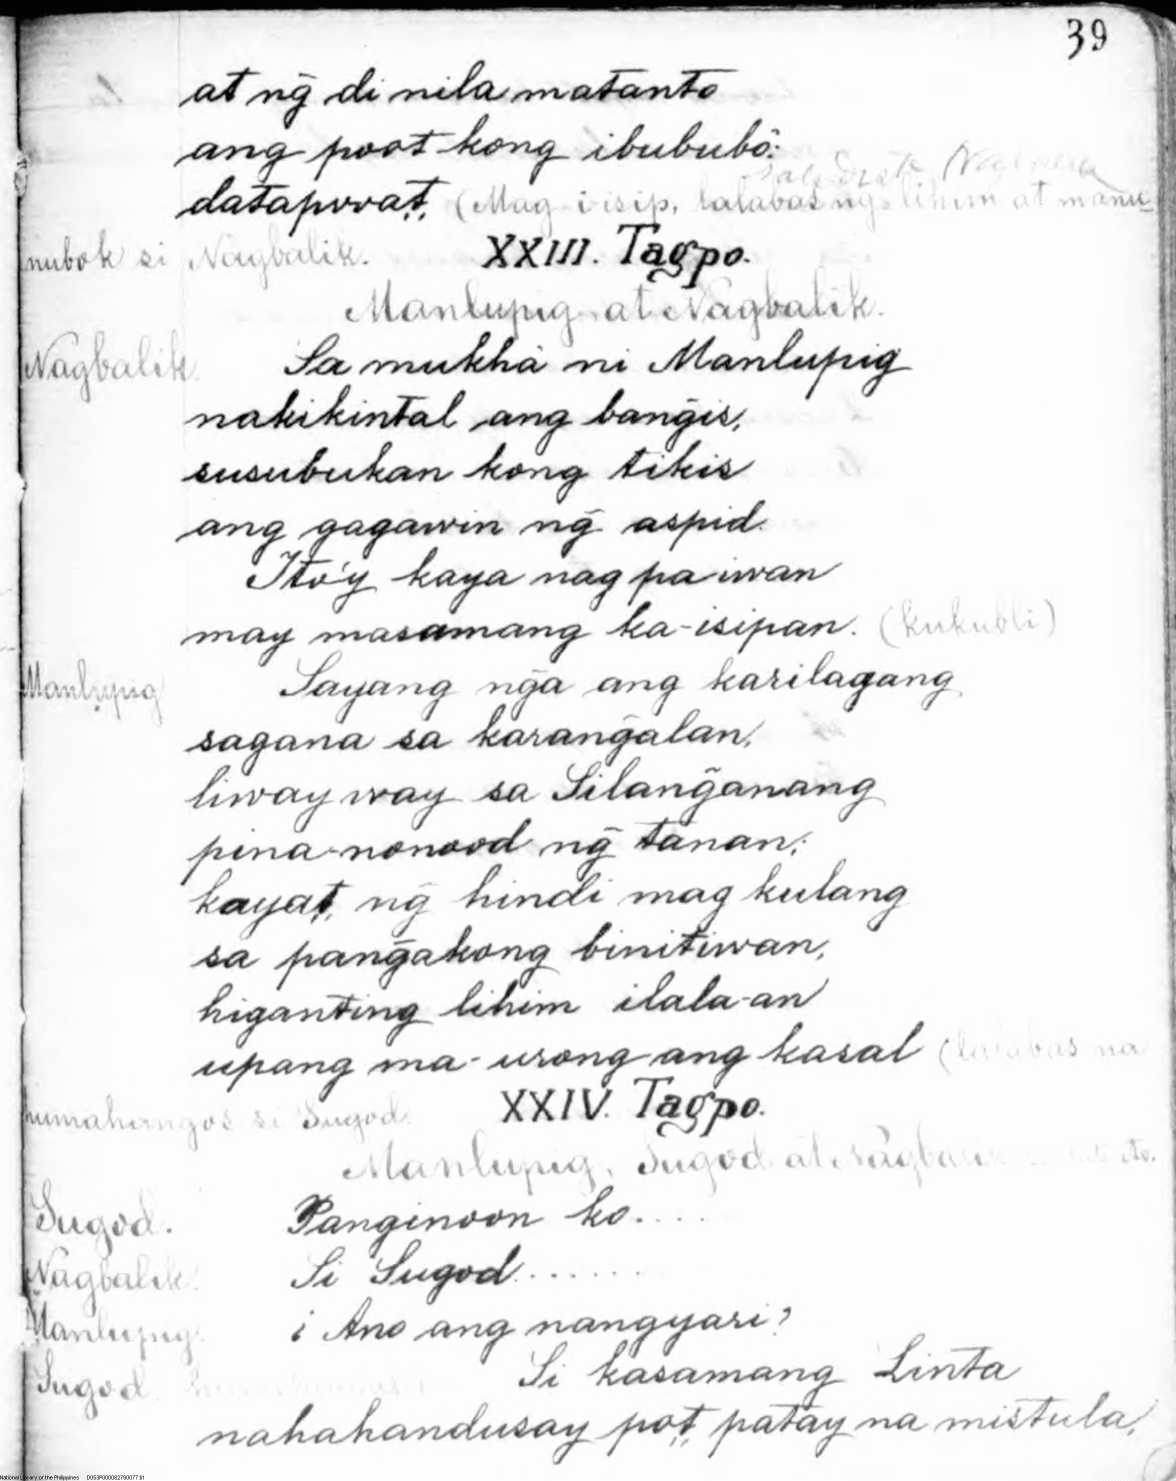 39
at ng̃ di nila matanto
ang poot kong ibububô:
datapwa't, (Mag-iisip, lalabas ng lihim at manu-
nubok si Nagbalik.
XXIII. Tagpo.
Manlupig at Nagbalik.
Nagbalik. Sa mukhà ni Manlupig
nakikintal ang bang̃is,
susubukan kong tikis
ang gagawin ng̃ aspid.
Ito'y kaya nag pa iwan
may masamang ka-isipan. (kukubli)
Manlupig Sayang ng̃a ang karilagang
sagana sa karang̃alan,
liway way sa Silang̃anang
pina-nonood ng̃ tanan;
kaya't, ng̃ hindi mag kulang
sa pang̃akong binitiwan,
higanting lihim ilala-an
upang ma-urong ang kasal (lalabas na
humahangos si Sugod.
XXIV. Tagpo.
Manlupig, Sugod at Nagbalik
Sugod. Panginoon ko....
Nagbalik. Si Sugod.......
Manlupig. ¿Ano ang nangyari?
Sugod. Si kasamang Linta
nahahandusay po't, patay na mistula,
National Library of the Philippines